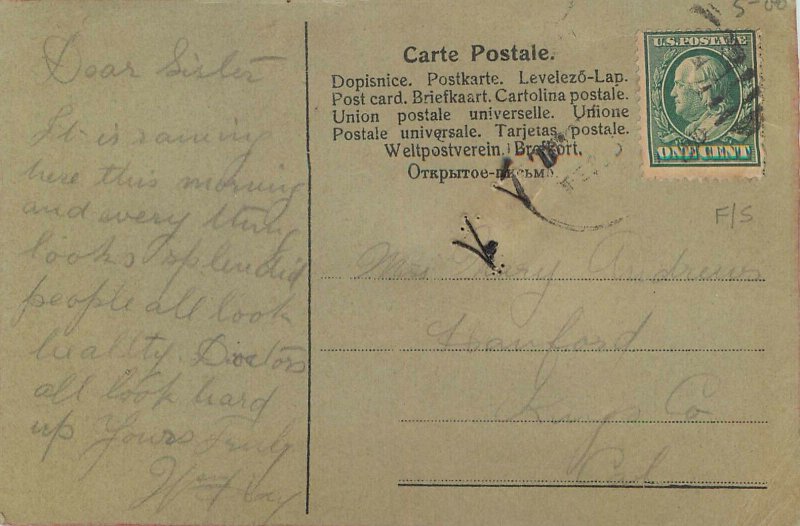 Dear Sister
It is raining
here this morning
and every thing
looks splendid
people all look
healty. Doctors
all look hard
up Yours Truly
Carte Postale.
Dopisnice. Postkarte. Levelező-Lap.
Post card. Briefkaart. Cartolina postale.
Union postale universelle. Unione
Postale universale. Tarjetas postale.
Weltpostverein. Brefkort.
Открытое-письмо.
U.S. POSTAGE
ONE CENT
5-00
F/S
Mrs Mary Andrews
Hanford
Kings Co
Cal